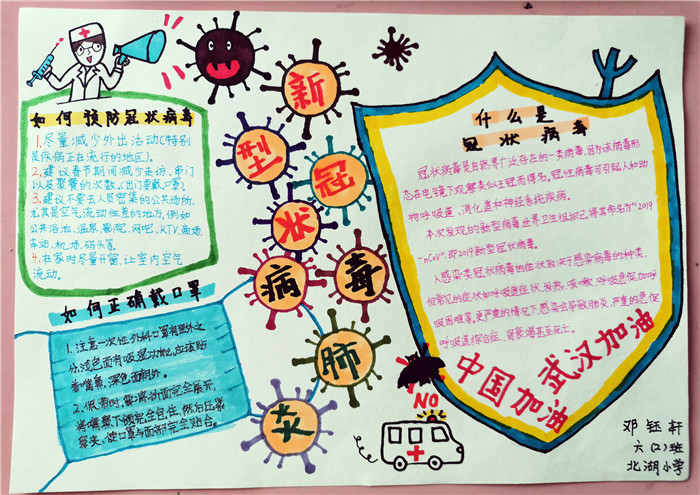 如何预防冠状病毒
1、尽量减少外出活动(特别
是疾病正在流行的地区)。
2、建议春节期间减少走访、串门
以及聚餐的次数。(出门要戴口罩)
3、建议不要去人员密集的公共场所,
尤其是空气流动性差的地方,例如
公共浴池、温泉、影院、网吧、KTV、商场、
车站、机场、码头等。
4、在家时尽量开窗,让室内空气
流动。
如何正确戴口罩
1、注意一次性外科口罩有里外之
分,浅色面有吸湿功能,应该贴
着嘴鼻,深色面朝外。
2、佩带时,要将折面完全展开,
将嘴鼻下颌完全包住,然后压紧
鼻夹,使口罩与面部完全贴合。
新
型
冠
状
病
毒
肺
炎
什么是
冠状病毒
冠状病毒是自然界广泛存在的一类病毒,因为该病毒形
态在电镜下观察类似王冠而得名。冠性病毒可引起人和动
物呼吸道、消化道和神经系统疾病。
本次发现的新型病毒世界卫生组织已将其命名为"2019
-nCoV",即2019新型冠状病毒。
人感染类冠状病毒的症状取决于感染病毒的种类,
但常见的症状如呼吸道症状、发热、咳嗽、呼吸急促加呼
吸困难等。更严重的情况下感染会导致肺炎、严重的急促
呼吸道综合症、肾衰竭甚至死亡。
武汉加油
中国加油
NO
邓钰轩
六(2)班
北湖小学